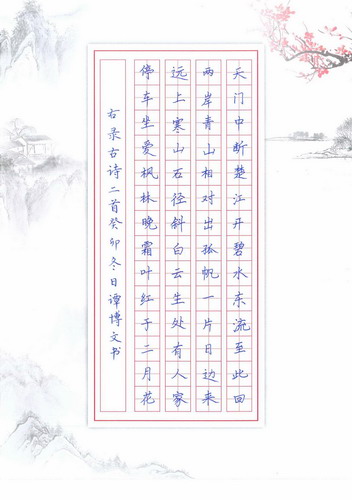 天门中断楚江开碧水东流至此回
两岸青山相对出孤帆一片日边来
远上寒山石径斜白云生处有人家
停车坐爱枫林晚霜叶红于二月花
右录古诗二首癸卯冬日谭博文书